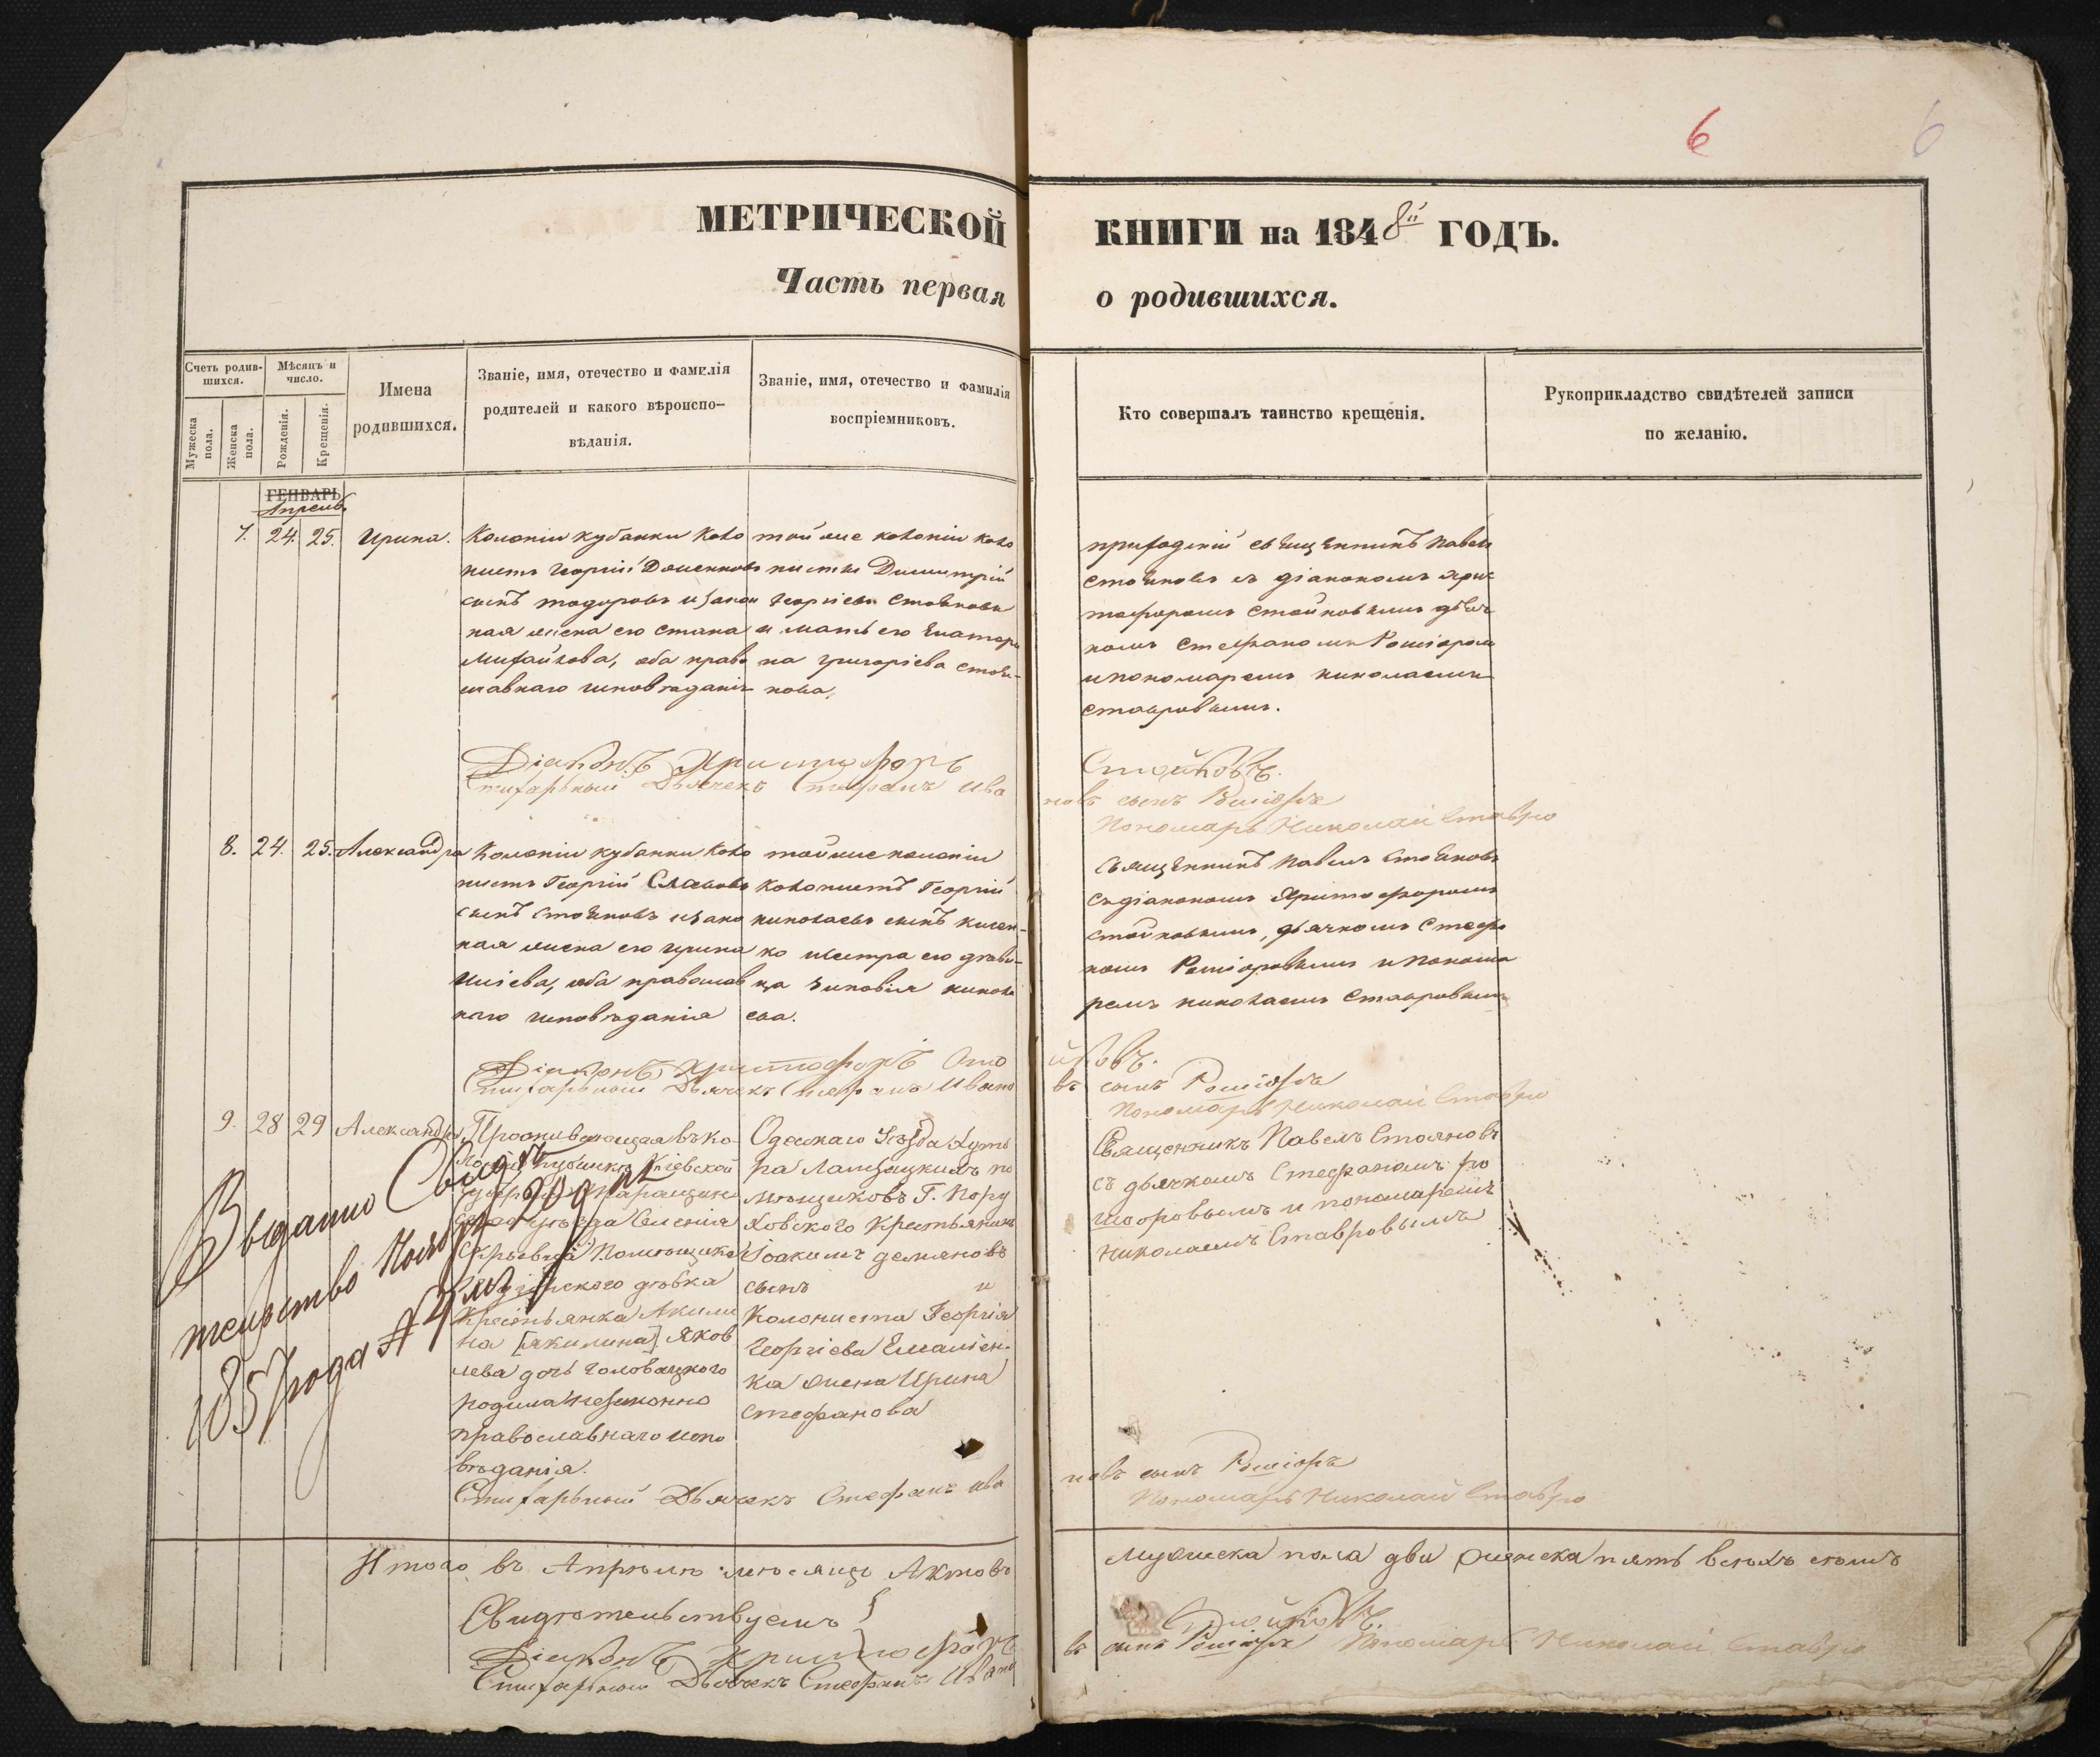 6
6
МЕТРИЧЕСКОЙ
КНИГИ на 1848й ГОДЪ.
Часть первая
о родившихся.
Счетъ родив-
шихся.
Мужеска
пола.
Женска
пола.
Мѣсяцъ и
число.
Рожденія.
Крещенія.
Имена
родившихся.
Званіе, имя, отечество и фамилія
родителей и какого вѣроиспо-
вѣданія.
Званіе, имя, отечество и фамилія
воспріемниковъ.
Кто совершалъ таинство крещенія.
Рукоприкладство свидѣтелей записи
по желанію.
ГЕНВАРЬ
Апрель
7. 24. 25. Ирина.
Колоніи кубанки коло
нистъ Георгій
сынъ тодоровъ и закон
ная жена его стана
Михайлова, оба право
славнаго исповѣданія
той же колоніи коло
нистъ Димитрій
Георгіевъ Стояновъ
и мать его Екатери
на григоріева стоя-
нова.
приходскій священникъ павелъ
стояновъ съ діакономъ хрис
тофоромъ стойковымъ дьяч
комъ стефаномъ Рошіоромъ
и пономаремъ николаемъ
ставровымъ.
Діаконъ Христофоръ
Стойковъ.
Стихарный Дьячекъ Стефанъ Ива
новъ сынъ Рошіоръ
Пономарь Николай Ставро
8. 24. 25. Александра
Колоніи кубанки коло
нистъ Георгій Славовъ
сынъ стояновъ и закон
ная жена его ирина
Иліева, оба православ
наго исповѣданія
той же колоніи
колонистъ Георгій
николаевъ сынъ
ко и сестра его дѣви-
ца зиновія никола
ева.
священникъ павелъ стояновъ
съ діакономъ Христофоромъ
стойковымъ, дьячкомъ Стефа
номъ Рошіоровымъ и понома
ремъ николаемъ ставровымъ
Діаконъ Христофоръ Сто
йковъ.
Стихарный Дьячекъ Стефанъ Ивано
въ сынъ Рошіоръ
Пономарь Николай Ставро
9. 28 29 Александра
Проживающая въ ко-
лоніи Кубанки Кіевской
уѣзда Селенія
Помѣщика
дѣвка
Крестьянка Акили
на [акилина] Яков
лева дочь головацкого
родила незаконно
православнаго испо
вѣданія.
Одескаго Уѣзда Хуто
ра по
мѣщиковъ Г.
Крестьянинъ
Іоакимъ демяновъ
сынъ и
Колониста Георгія
Георгіева
ка жена Ирина
стефанова
Священникъ Павелъ Стояновъ
съ дьячкомъ Стефаномъ ро
шіоровымъ и пономаремъ
Николаемъ Ставровымъ
Выдано Свидѣ
тельство Ноября 20 дня
1857 года №
Стихарный Дьячекъ Стефанъ Ива
новъ сынъ Рошіоръ
Пономарь Николай Ставро
Итого въ Апрѣлѣ мѣсяцѣ Актовъ
Мужеска пола два женска пять всѣхъ семь
Свидѣтельствуемъ
Діаконъ Христофоръ
Стойковъ.
Стихарный Дьячекъ Стефанъ Ивано
въ сынъ Рошіоръ Пономарь Николай Ставро